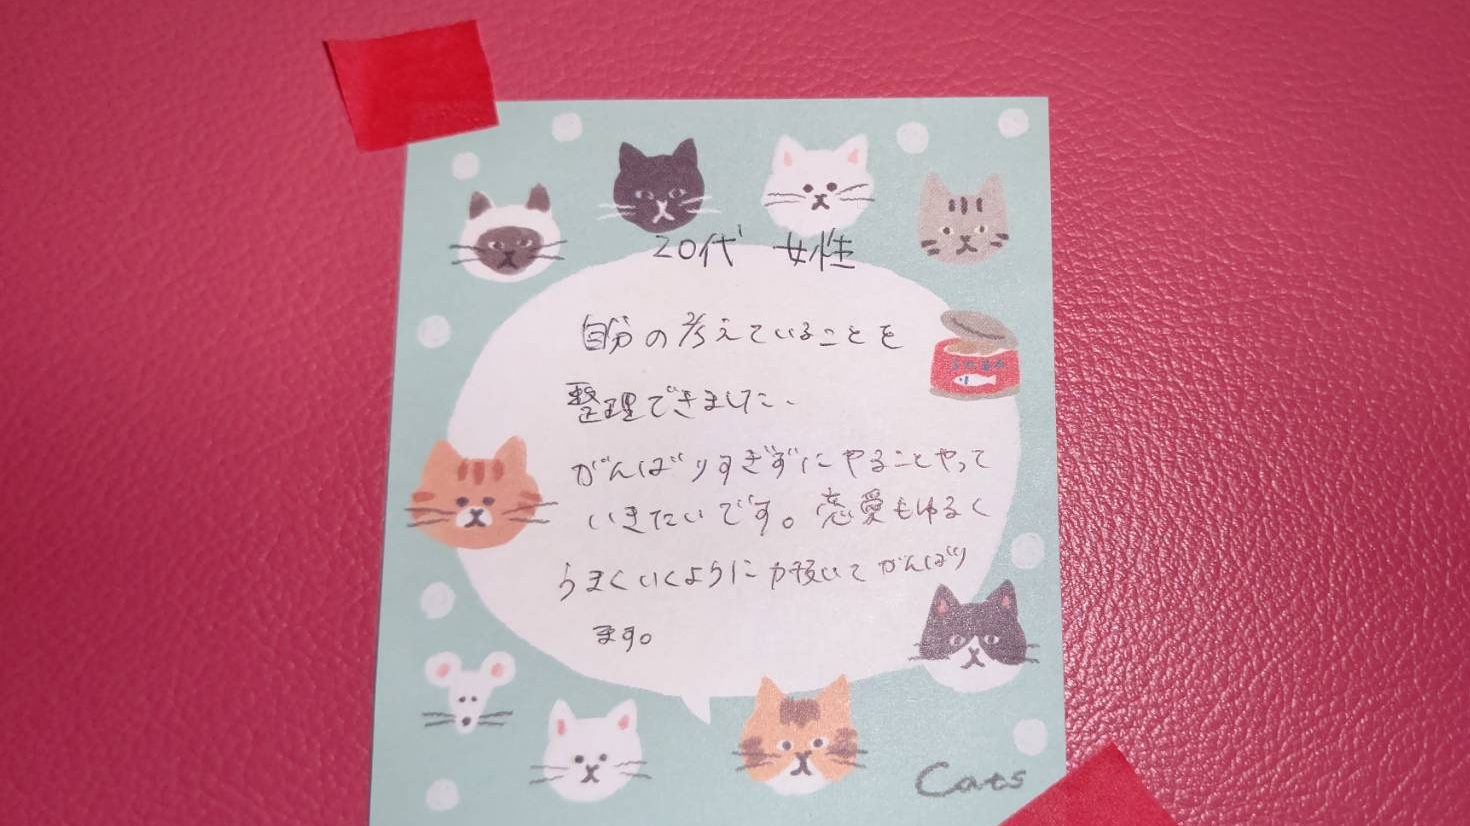 20代 女性
自分の考えていることを
整理できました、
がんばりすぎずにやることやって
いきたいです。恋愛もゆるく
うまくいくように力抜いてがんばり
ます。
Cats